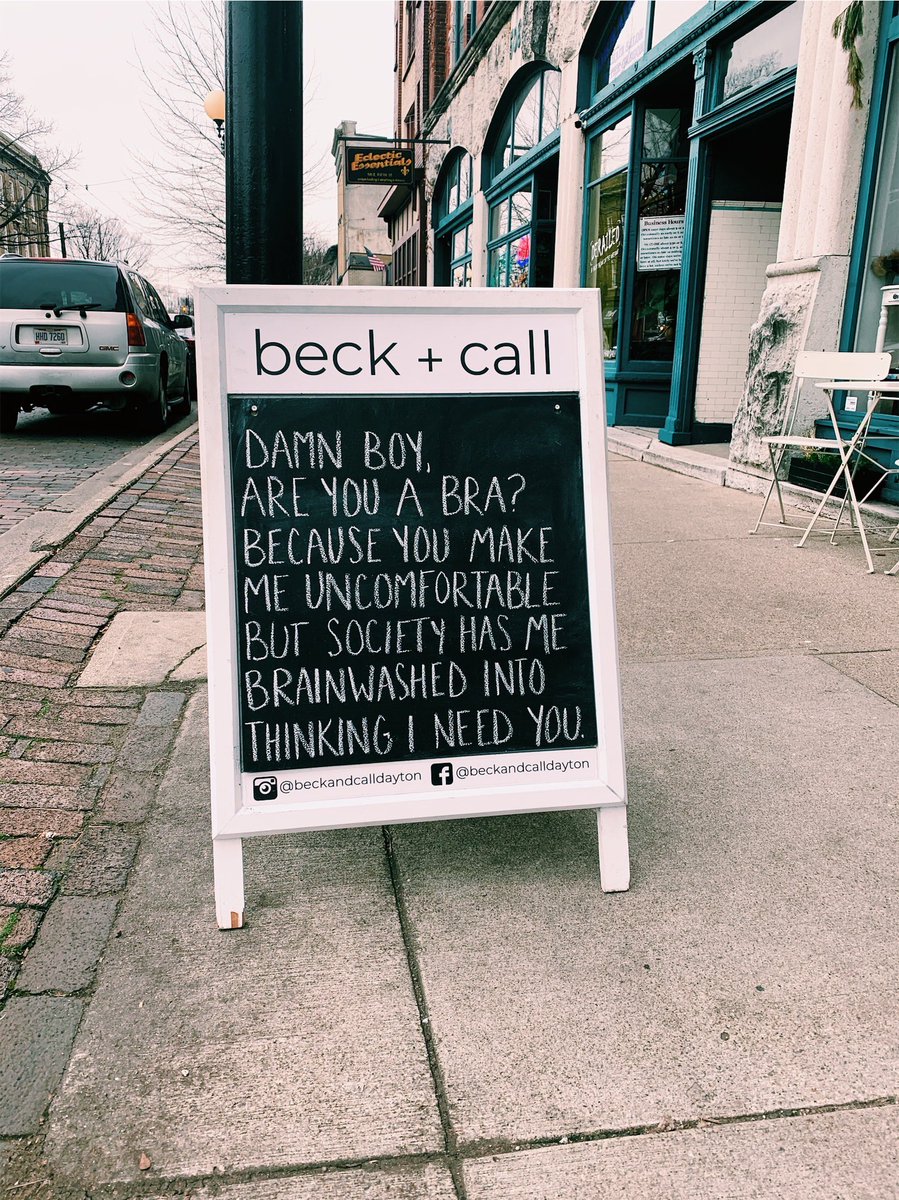 Eclectic
Essentials
HHD 7260
GMC
DERAILED
Business Hours
beck + call
DAMN BOY,
ARE YOU A BRA?
BECAUSE YOU MAKE
ME UNCOMFORTABLE
BUT SOCIETY HAS ME
BRAINWASHED INTO
THINKING I NEED YOU.
@beckandcalldayton
@beckandcalldayton